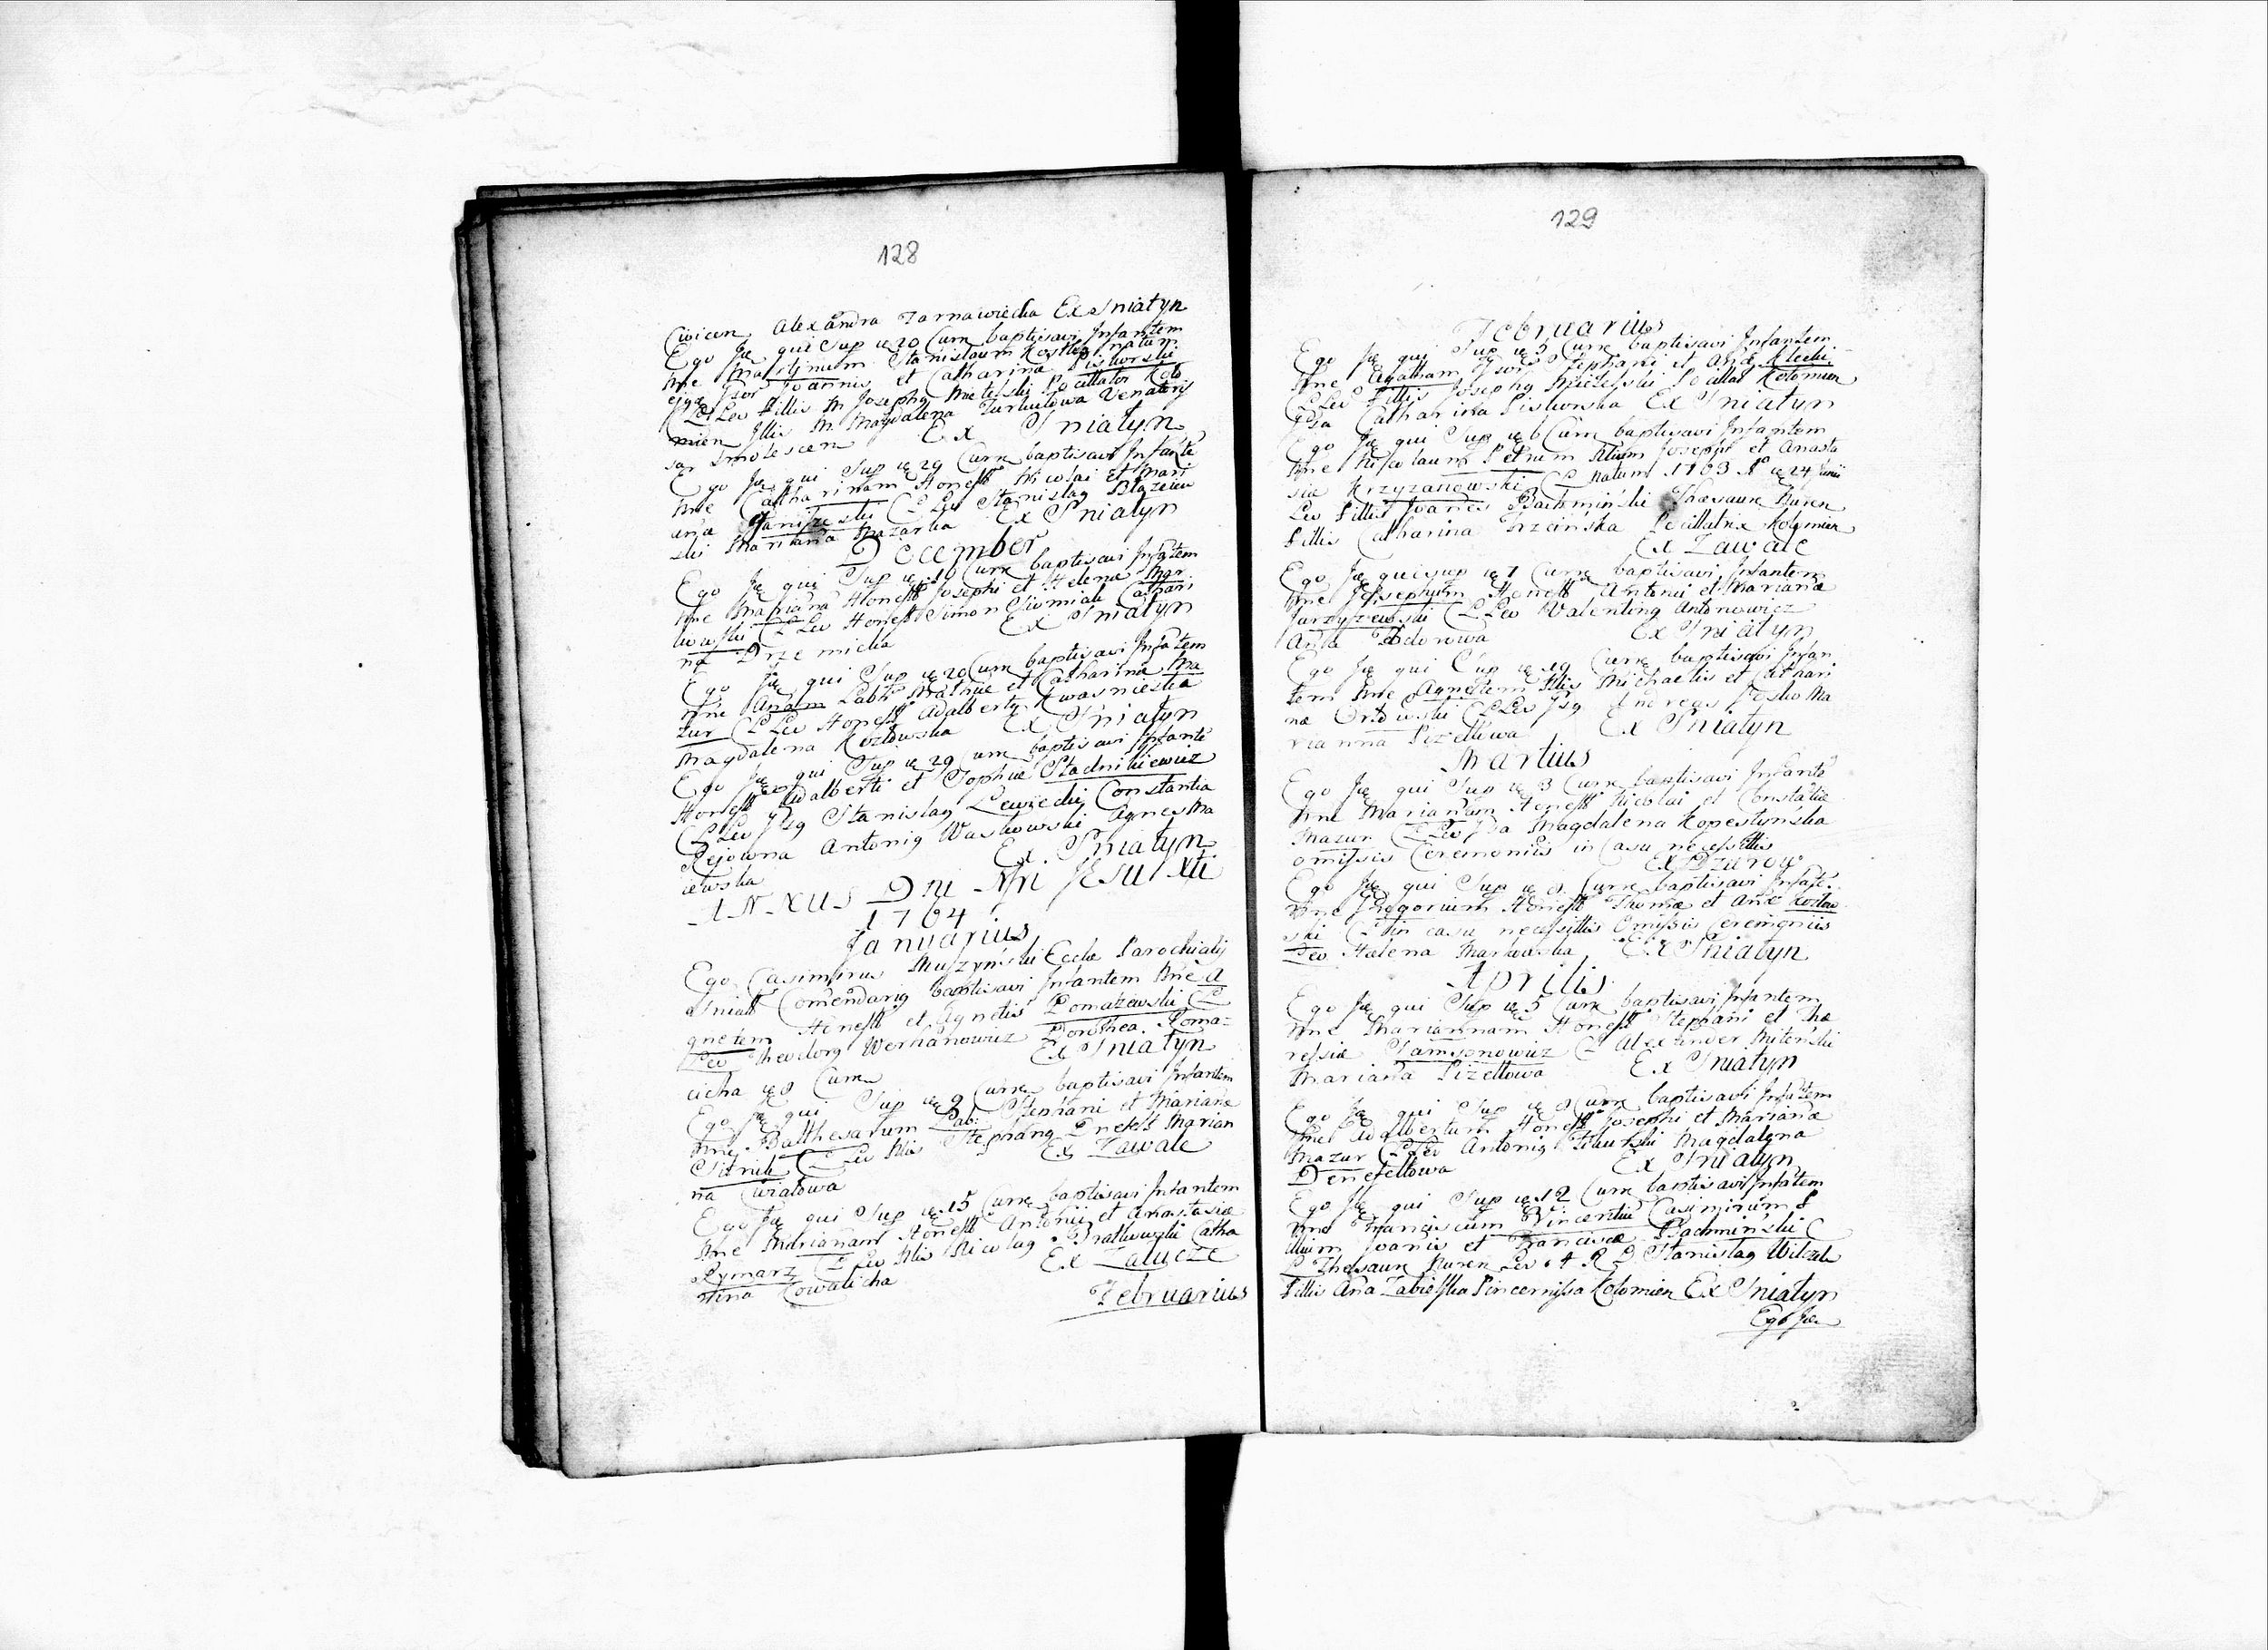 128
Civicen Alexandra Tarnawiecka Ex Sniatyn
Ego Jde qui Sup de 20 Curr baptisavi Infantem
Nne Martinum Stanislaum Kostka natum
Joannis et Catharina Piskorski
CLLev Illis M Josephg Mietelski Pocillator Kolo
mien Illis M. Magdalena Turkulowa Venatoris
Smolescen Ex Sniatyn
Ego Jde qui Sup de 29 Curr baptisavi Infante
Nne Catharinam Honest Nicolai et Mari
anna CLLev Stanislag Blazeiew
ski Marianna Mazarka Ex Sniatyn
December
Ego Jde qui Sup de 10 Curr baptisavi Infatem
Nne Mariana Honest Josephi et Helena Mar
kowski CLLev Honest Simon Cathari
na Drzemicka Ex Sniatyn
Ego Jde qui Sup de 20 Curr baptisavi Infatem
Nne Anam Lab Mathiae et Catharina Ma
zur CLLev Honest Adalbertg Kwasniewska
Magdalena Kozlowska Ex Sniatyn
Ego Jde qui Sup de 29 Curr baptisavi Infante
Honest Adalberti et Sophiae Stadnikiewicz
CLLev Jsg Stanislag Lewicki Constantia
Rejowna Antonig Waskowski Agnes Ma
iewska Ex Sniatyn
ANNUS Dni Nri JESU Xti
1764
Januarius
Ego Casimirus Muszynski Eccle Parochialis
Sniat Comendarig baptisavi Infantem Nne A
gnetem Honest et Agnetis Domazewski CL
Lev Theodorg Wernanowicz Dorothea Roma=
cicha de 8 Curr Ex Sniatyn
Ego Jde qui Sup de 9 Curr baptisavi Infantem
Nne Balthesarum Lab: Stephani et Mariane
Sitnik CLLev Illis Stephang Marian
na Cwialowa Ex Zawale
Ego Jde qui Sup de 15 Curr baptisavi Infantem
Nne Mariannam Honest Antonii et Anastasiae
Rymarz CLLev Illis Nicolag Bratkowski Catha
rina Kowalicha Ex Zalucze
Februarius
129
Februarius
Ego Jde qui Sup de 5 Curr baptisavi Infantem
Nne Agatham Gsor Stephani et Anae Klecki
CLLev Illis Josephg Mietelski Pocillat Kolomien
Gsa Catharina Piskorska Ex Sniatyn
Ego Jde qui Sup de 6 Curr baptisavi Infantem
Nne Nicolaum Petrum filium Josephi et Anasta
sia Krzyzanowski CL natum 1763 Ao de 24 Junii
Lev Illis Joanes Bachminski Thesaur Buren
Illis Catharina Trzcinska Pocillatrix Kolomien
Ex Zawale
Ego Jde qui Sup de 7 Curr baptisavi Infantem
Nne Josephum Honest Antonii et Marianae
Jarzyzewski CLLev Valenting Antonowicz
Anna Fedorowa Ex Sniatyn
Ego Jde qui Sup de 19 Curr baptisavi Infan
tem Nne Agnetem Illis Michaelis et Cathari
nae Orlowski CLLev Jsg Andreas Ma
rianna Pizettowa Ex Sniatyn
Martius
Ego Jde qui Sup de 3 Curr baptisavi Infante
Nne Mariannam Honest Nicolai et Constatiae
Mazur CLLev Jsa Magdalena Kopestynska
omissis Ceremoniis in Casu necessitis
Ex Dzurow
Ego Jde qui Sup de 8 Curr baptisavi Infate
Nne Gregorium Honest Thomae et Anae Kozlow
ski CL in casu necessitis Omissis Ceremoniis
Lev Helena Markowska Ex Sniatyn
Aprilis
Ego Jde qui Sup de 5 Curr baptisavi Infantem
Nne Mariannam Honest Stephani et The
resiae Samsonowicz CL Alexander Mitenski
Marianna Pizettowa Ex Sniatyn
Ego Jde qui Sup de 8 Curr baptisavi Infatem
Nne Adalbertum Honest Josephi et Marianae
Mazur CLLev Antonig Magdalena
Denefettowa Ex Sniatyn
Ego Jde qui Sup de 12 Curr baptisavi Infatem
Nne Franciscum Vincentiu Casimirum f
ilium Joanis et Franciscae Bachminski C
L Thesaur Buren Lev A R D Stanislag Wilczek
Illis Ana Zabielska Pincernissa Kolomien Ex Sniatyn
Ego Jde